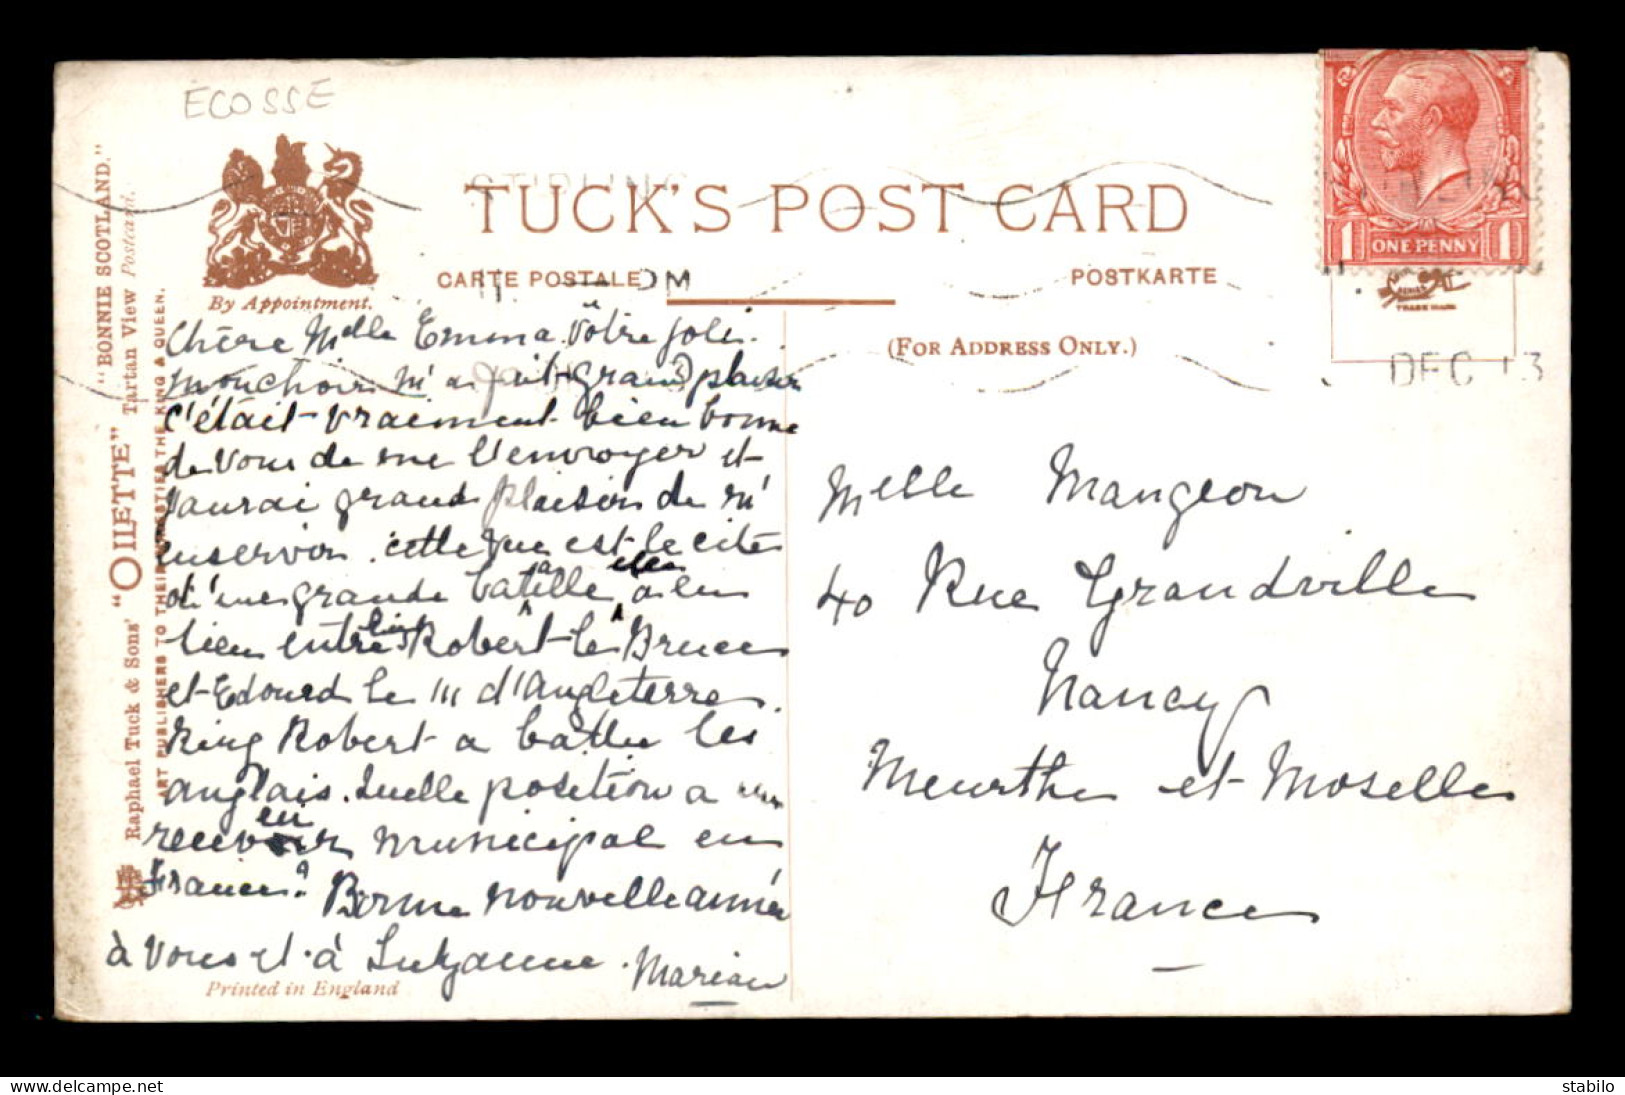 ECOSSE
TUCK'S POST CARD
CARTE POSTALE
POSTKARTE
(FOR ADDRESS ONLY.)
By Appointment.
"BONNIE SCOTLAND."
Raphael Tuck & Sons' "OILETTE" Tartan View Postcard.
ART PUBLISHERS TO THEIR MAJESTIES THE KING & QUEEN.
ONE PENNY
1 1
TRADE MARK
DEC 13
Chère Melle Emma. Vôtre joli
mouchoir m'a fait grand plaisir
c'était vraiment bien bonne
de vous de me l'envoyer et
j'aurai grand plaisir de m'
enservoir. cette vue est le cité
d'une grande bataille a eu
lieu entre Robert le Bruce
et Edouard le III d'Angleterre.
King Robert a battu les
anglais. Quelle position a un
receveur municipal en
France? Bonne nouvelle année
à vous et à Suzanne. Marian
Printed in England
Melle Mangeon
40 Rue Grandville
Nancy
Meurthe et Moselle
France
stabilo